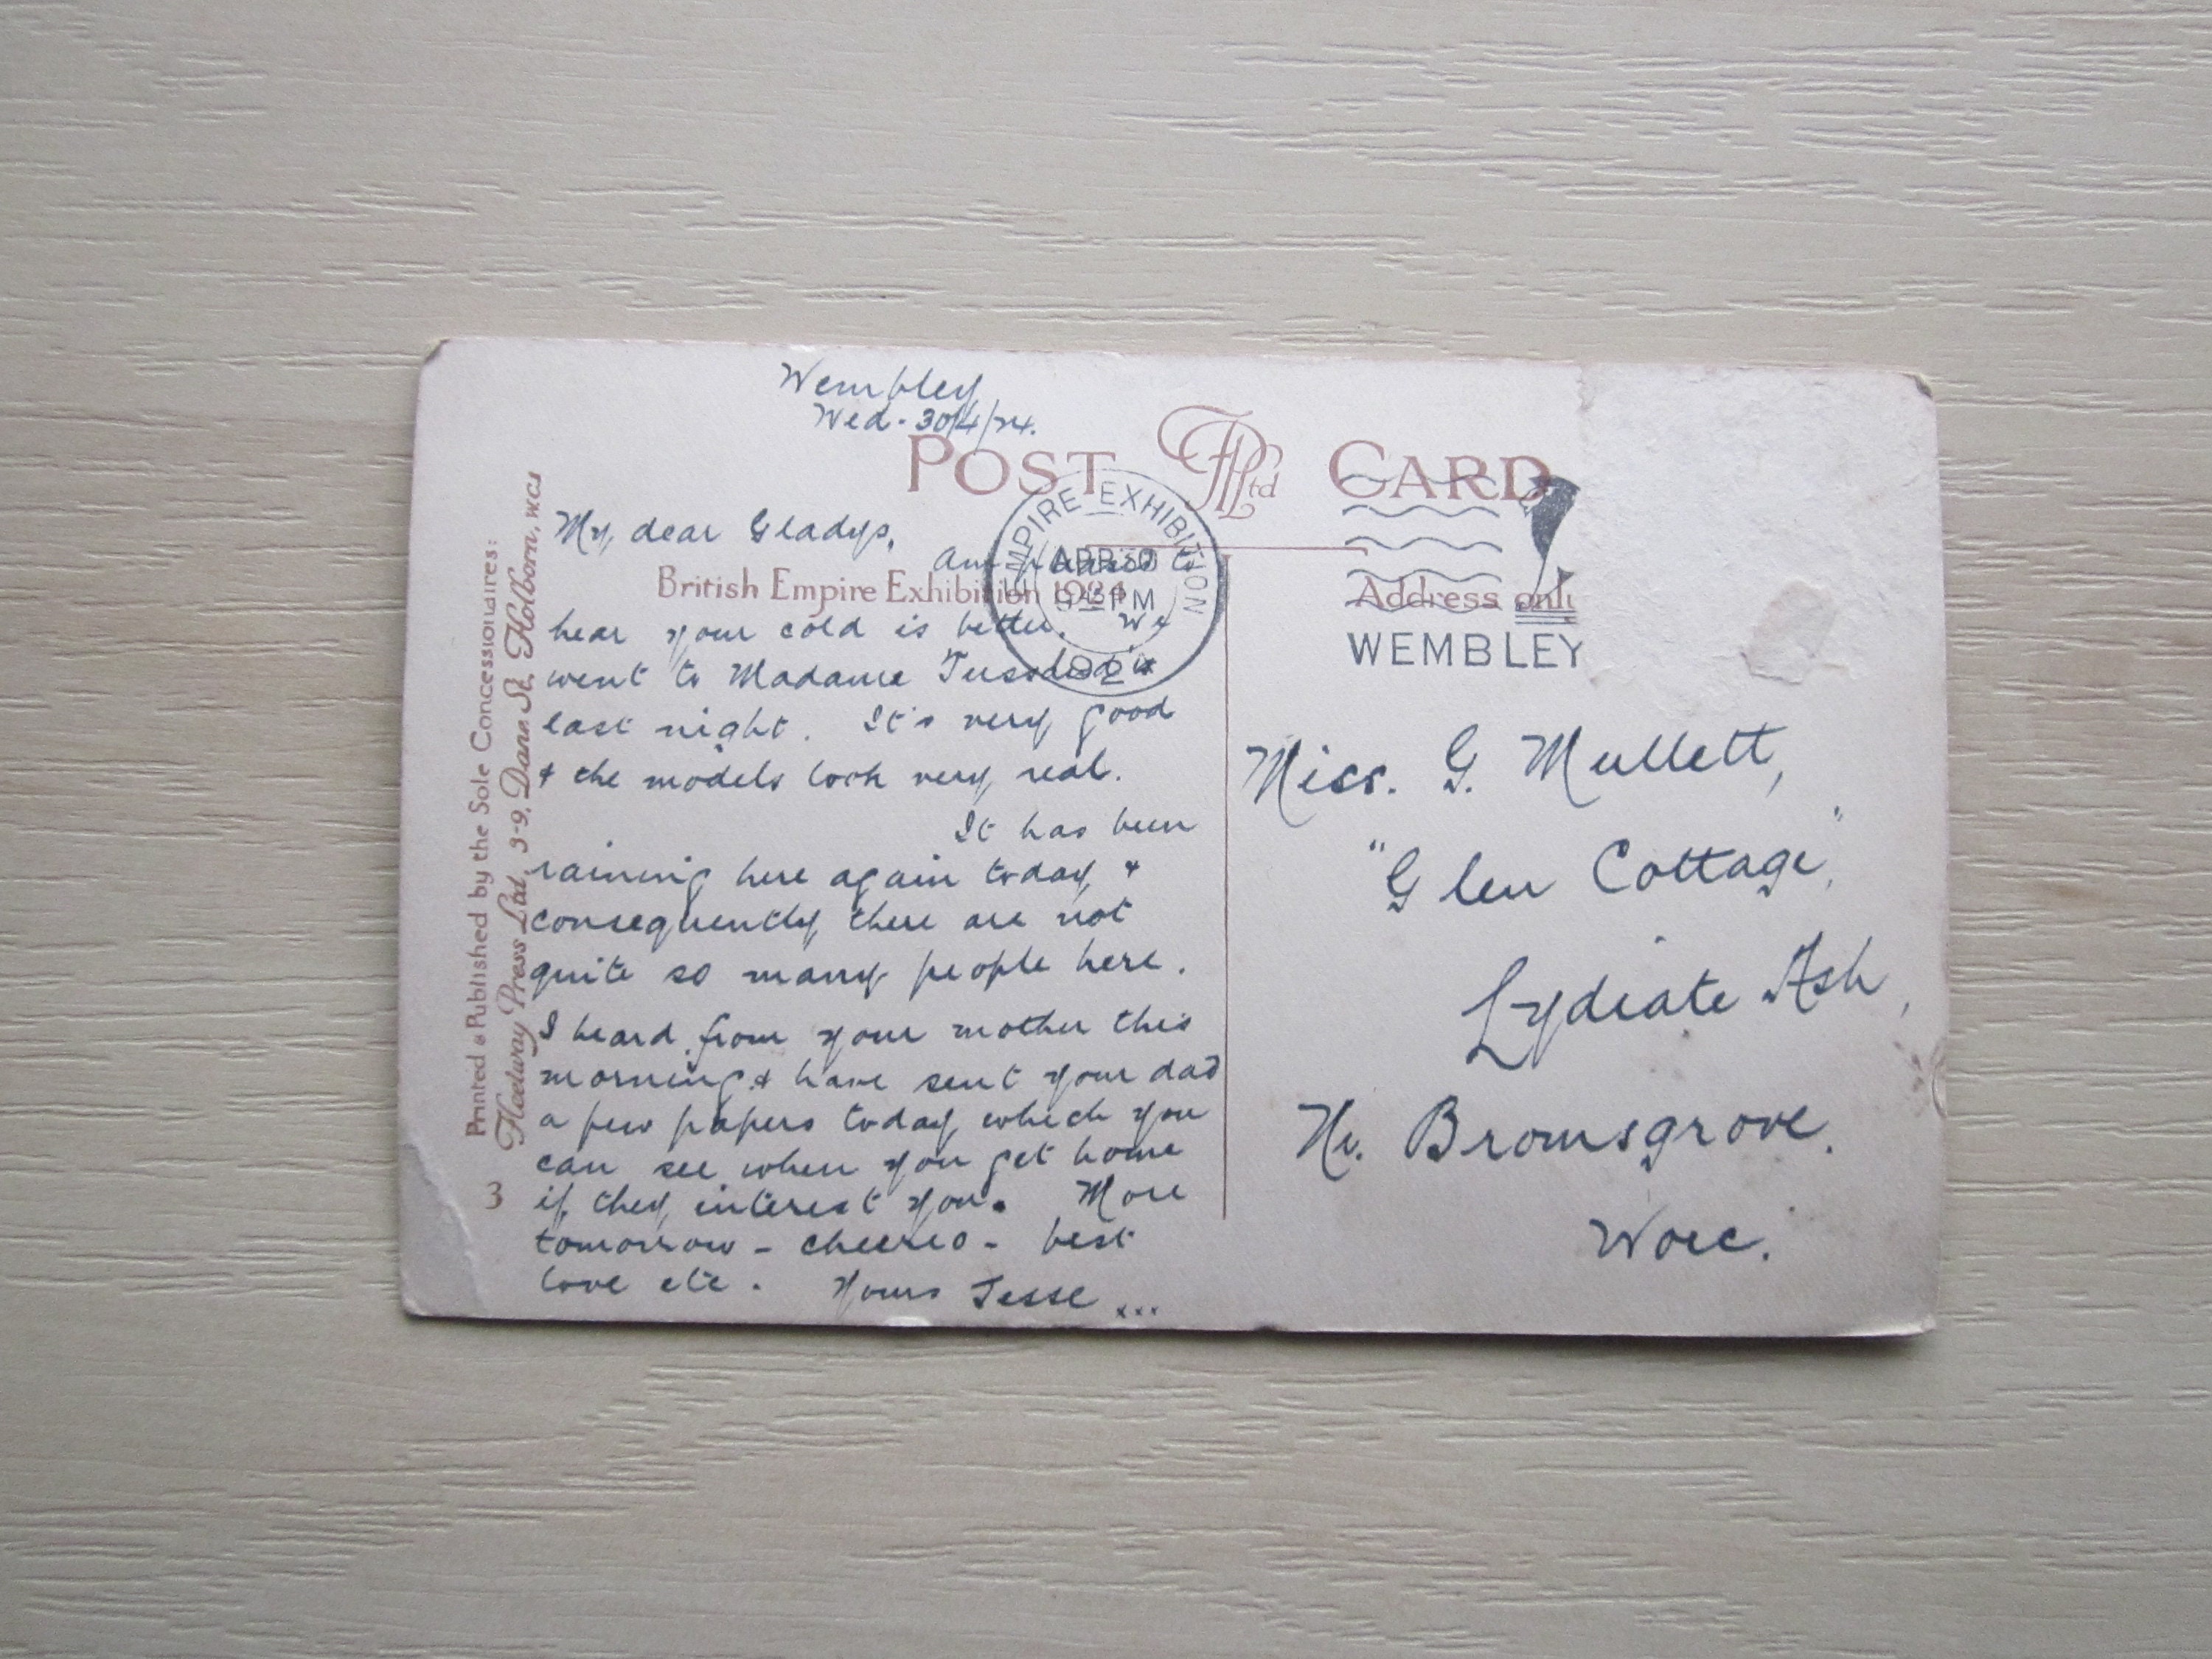 Wembley
Wed. 30/4/24.
POST FPLtd CARD
My dear Gladys,
Am pleased to
British Empire Exhibition 1924
hear your cold is better. We
went to Madame Tussaud's
last night. It's very good
& the models look very real.
It has been
raining here again today &
consequently there are not
quite so many people here.
I heard from your mother this
morning & have sent your dad
a few papers today which you
can see when you get home
if they interest you. More
tomorrow - cheerio - best
love etc. Yours Jesse ...
Printed & Published by the Sole Concessionaires:
Fleetway Press Ltd., 3-9, Dane St., Holborn, WC1
3
EMPIRE EXHIBITION
APR 30
PM
192
Address only
WEMBLEY
Miss. G. Mullett,
"Glen Cottage",
Lydiate Ash,
Nr. Bromsgrove.
Worc.